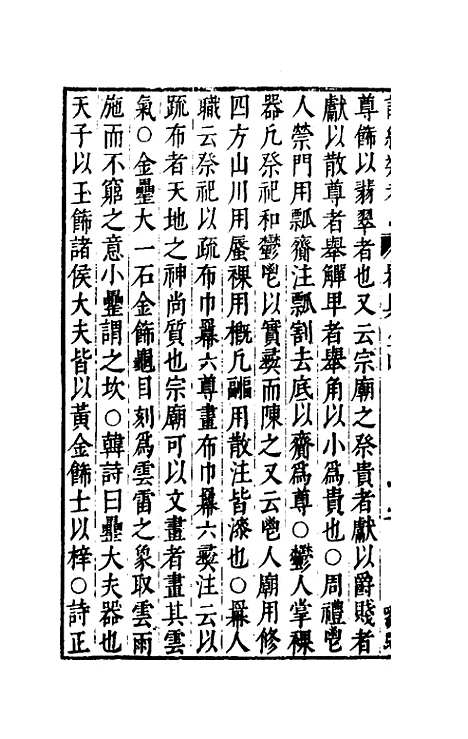 尊飾以翡翠者也又云宗廟之祭貴者獻以爵賤者
獻以散尊者舉觶卑者舉角以小爲貴也○周禮鬯
人禜門用瓢齎注瓢割去底以齎爲尊○鬱人掌祼
器凡祭祀和鬱鬯以實彜而陳之又云鬯人廟用修
四方山川用蜃祼用概凡疈用散注皆漆也○冪人
職云祭祀以疏布巾冪六尊畫布巾冪六彜注云以
疏布者天地之神尚質也宗廟可以文畫者畫其雲
氣○金罍大一石金飾龜目刻爲雲雷之象取雲雨
施而不窮之意小罍謂之坎○韓詩曰罍大夫器也
天子以玉飾諸侯大夫皆以黃金飾士以梓○詩正